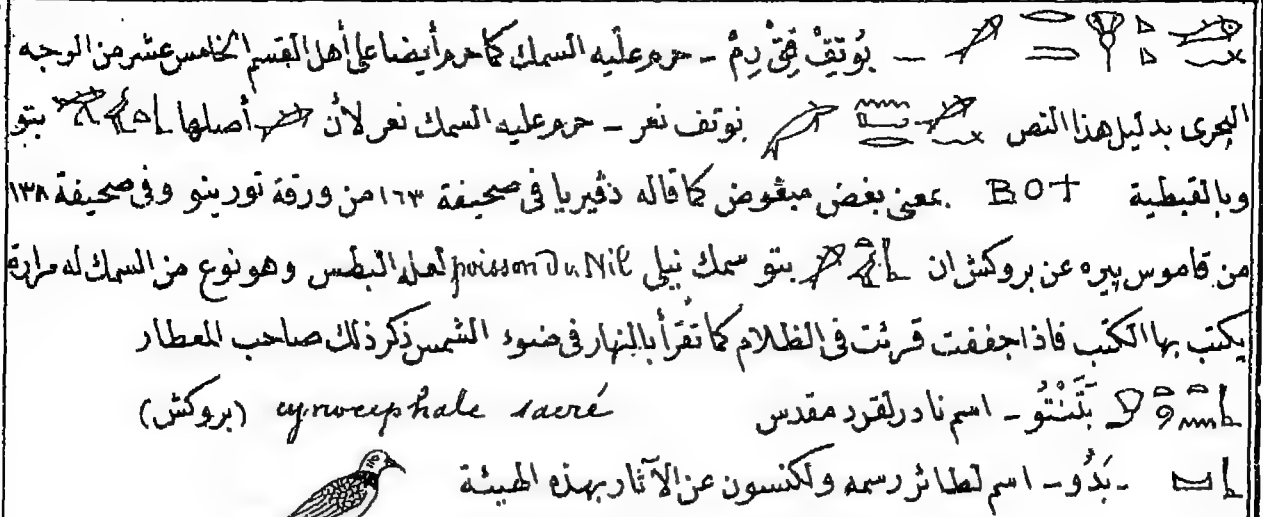 – بُوتِفْ قِقْ رِمْ – حرم عليه السمك كما حرم أيضا على أهل القسم الخامس عشر من الوجه
البحرى بدليل هذا النص نوتف نعر – حرم عليه السمك نعر لأن أصلها بتو
وبالقبطية BOT بمعنى بغض مبغوض كما قاله دڤيريا فى صحيفة ١٦٣ من ورقة تورينو وفى صحيفة ١٣٨
من قاموس پيره عن بروكش ان بتو سمك نيلى poisson du Nil لعله البطس وهو نوع من السمك له مرارة
يكتب بها الكتب فاذا جففت قرئت فى الظلام كما تقرأ بالنهار فى ضوء الشمس ذكر ذلك صاحب المعطار
بَتَنْتُو – اسم نادر لقرد مقدس cynocéphale sacré (بروكش)
– بَدُو – اسم لطائر رسمه ولكنسون عن الآثار بهذه الهيئة